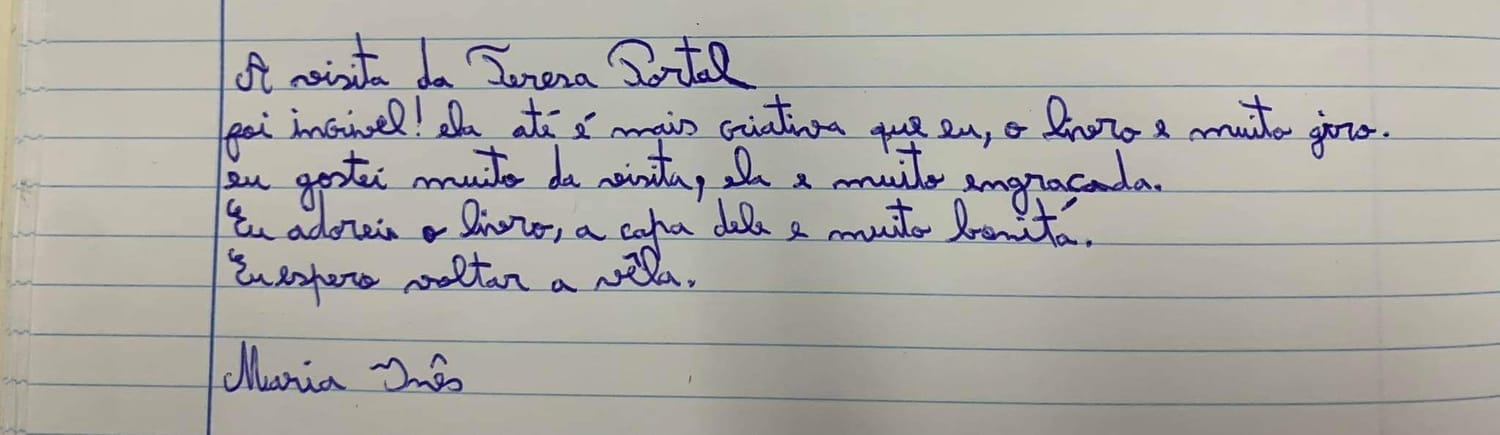 A visita da Teresa Portal
foi incrivel! ela até é mais criativa que eu, o livro e muito giro.
eu gostei muito da visita, ela e muito engraçada.
Eu adorei o livro, a capa dele e muito bonitá.
Eu espero voltar a vêla.
Maria Inês